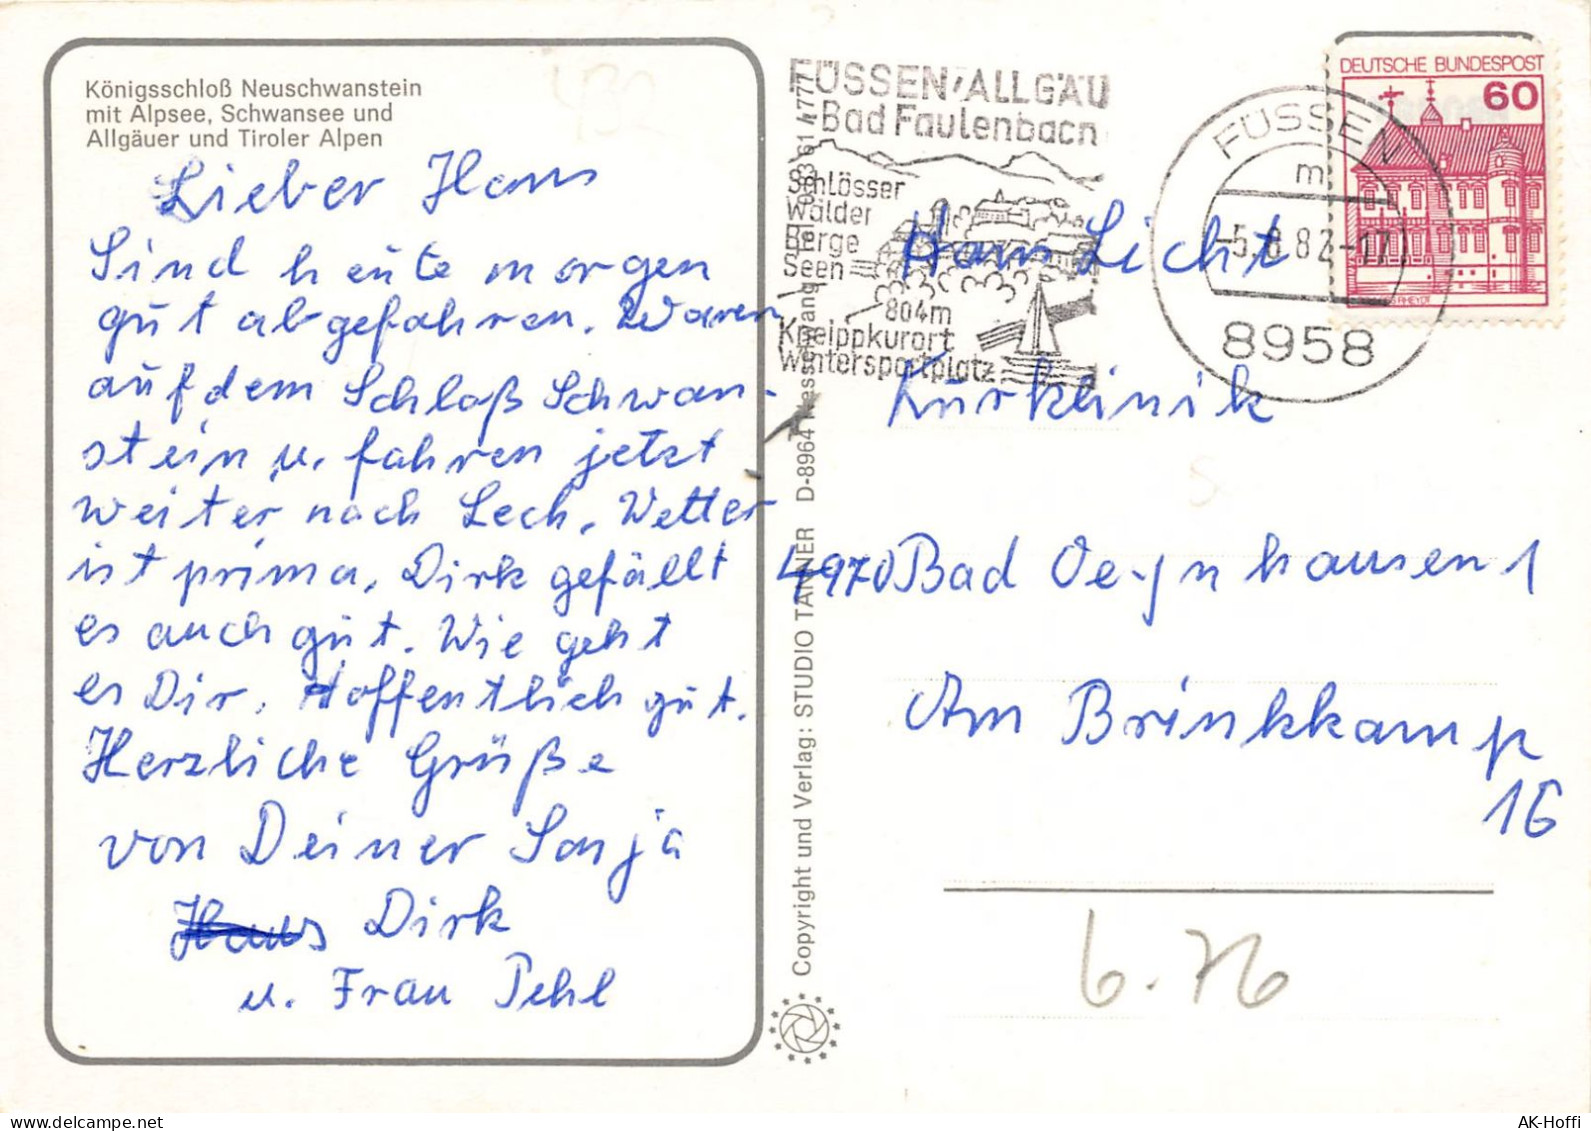 Königsschloß Neuschwanstein
mit Alpsee, Schwansee und
Allgäuer und Tiroler Alpen
432
Lieber Hans
Sind heute morgen
gut abgefahren. Waren
auf dem Schloß Schwan-
stein u. fahren jetzt
weiter nach Lech. Wetter
ist prima, Dirk gefällt
es auch gut. Wie geht
es Dir, Hoffentlich gut.
Herzliche Grüße
von Deiner Sonja
Hans Dirk
u. Frau Pehl
Copyright und Verlag: STUDIO TANNER D-8964
FÜSSEN/ALLGÄU
Bad Faulenbach
Schlösser
Wälder
Berge
Seen
804m
Kneippkurort
Wintersportplatz
FÜSSEN
m
8958
DEUTSCHE BUNDESPOST
60
RHEYDT
Hans Licht
Kurklinik
4970 Bad Oeynhausen 1
Am Brinkkamp
16
6.76
AK-Hoffi